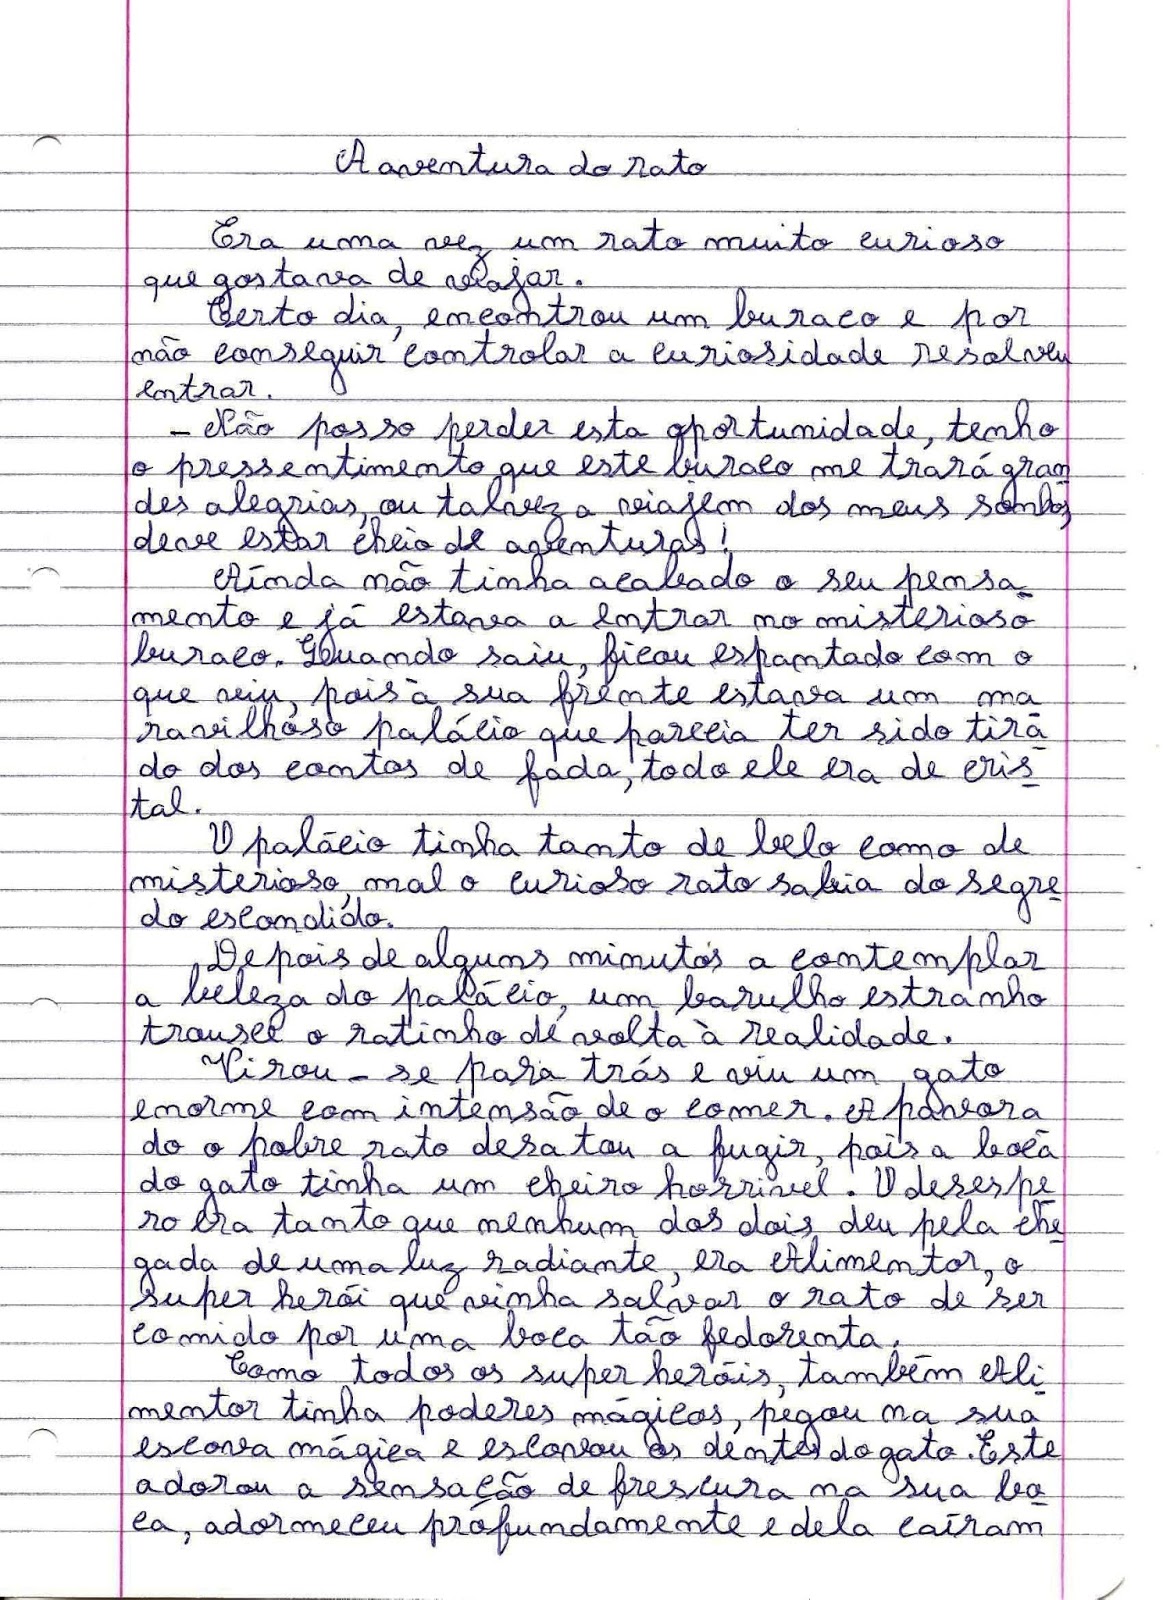 A aventura do rato
Era uma vez um rato muito curioso
que gostava de viajar.
Certo dia, encontrou um buraco e por
não conseguir controlar a curiosidade resolveu
entrar.
- Não posso perder esta oportunidade, tenho
o pressentimento que este buraco me trará gran
des alegrias, ou talvez a viajem dos meus sonhos,
deve estar cheio de aventuras!
Ainda não tinha acabado o seu pensa-
mento e já estava a entrar no misterioso
buraco. Quando saiu, ficou espantado com o
que viu, pois à sua frente estava um ma
ravilhoso palácio que parecia ter sido tira-
do dos contos de fada, todo ele era de cris-
tal.
O palácio tinha tanto de belo como de
misterioso, mal o curioso rato sabia do segre-
do escondido.
Depois de alguns minutos a contemplar
a beleza do palácio, um barulho estranho
trousce o ratinho de volta à realidade.
Virou-se para trás e viu um gato
enorme com intensão de o comer. Apavora
do o pobre rato desatou a fugir, pois a boca
do gato tinha um cheiro horrivel. O desespe-
ro era tanto que nenhum dos dois deu pela che-
gada de uma luz radiante, era Alimentor, o
super herói que vinha salvar o rato de ser
comido por uma boca tão fedorenta.
Como todos os super heróis, também Ali-
mentor tinha poderes mágicos, pegou na sua
escova mágica e escovou os dentes do gato. Este
adorou a sensação de frescura na sua bo-
ca, adormeceu profundamente e dela caíram